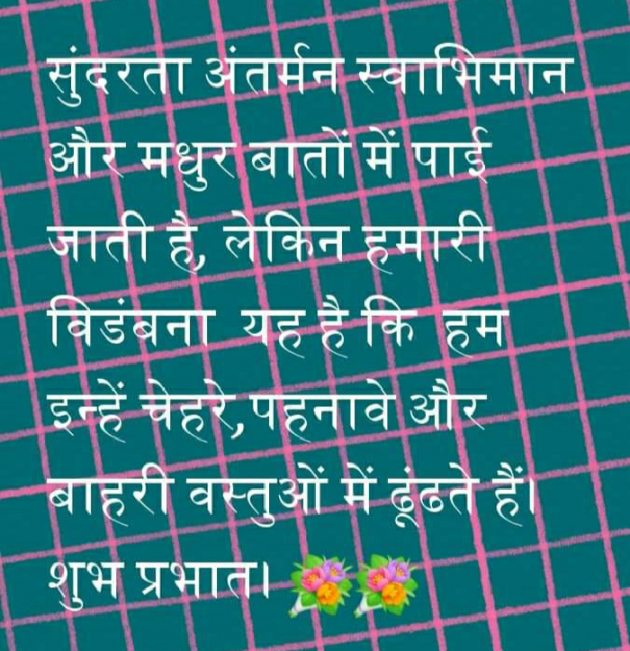 सुंदरता अंतर्मन स्वाभिमान
और मधुर बातों में पाई
जाती है, लेकिन हमारी
विडंबना यह है कि हम
इन्हें चेहरे,पहनावे और
बाहरी वस्तुओं में ढूंढते हैं।
शुभ प्रभात। 💐💐